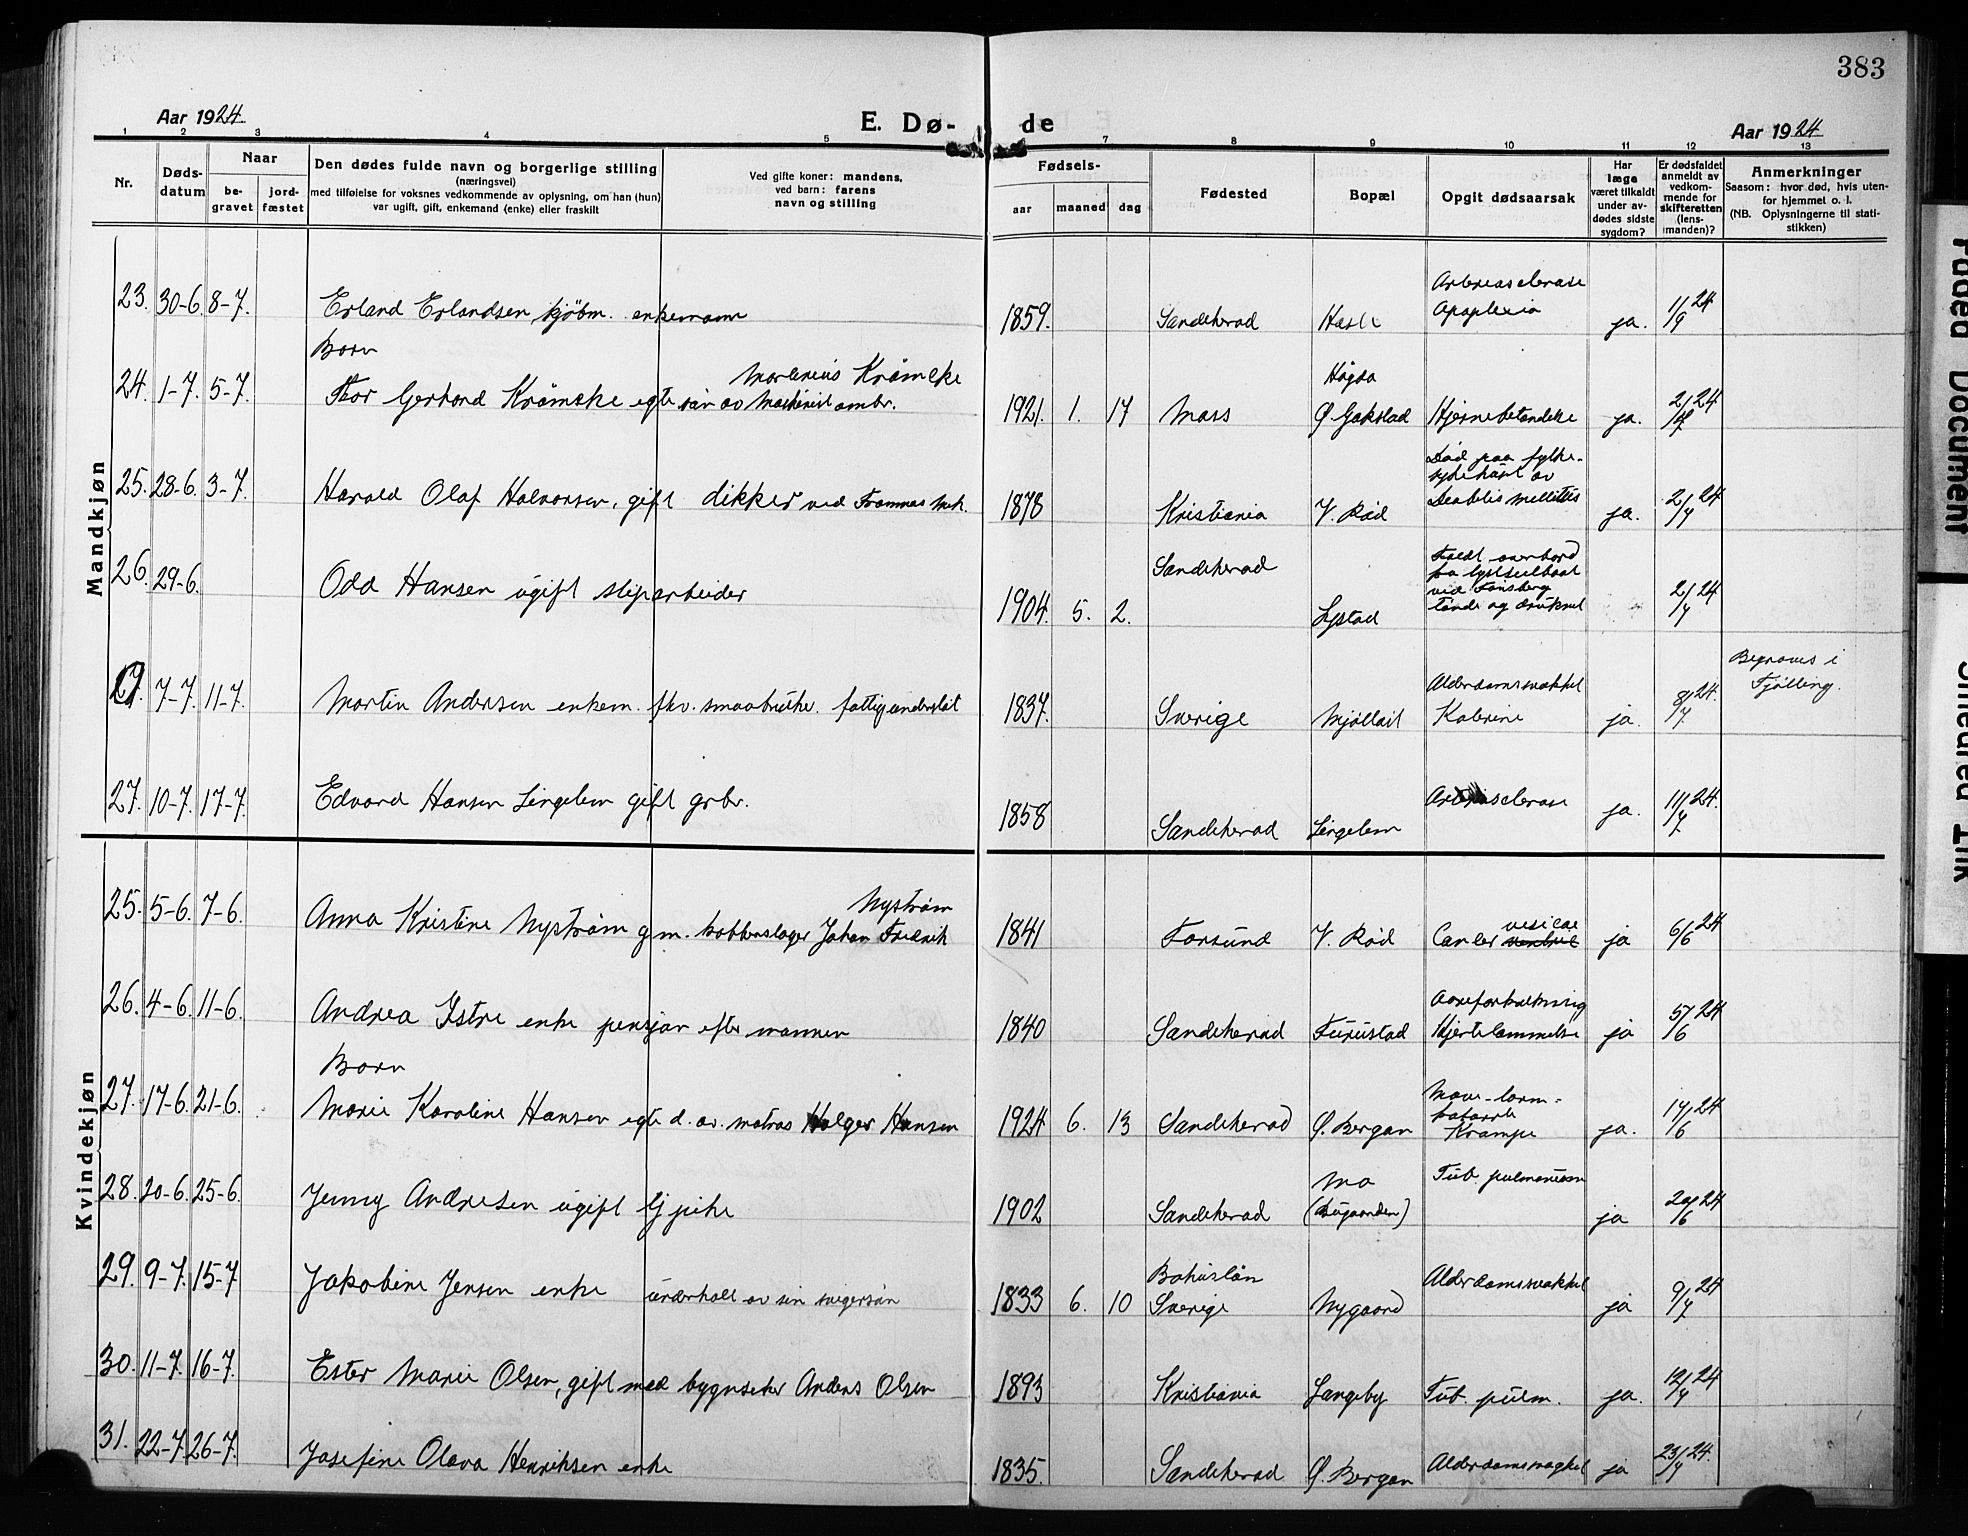 383
Aar 1924.
E. Dø- de
Aar 1924
1 2 3 4 5 7 8 9 10 11 12 13
Nr.
Døds-datum
Naar
be-gravet
jord-fæstet
Den dødes fulde navn og borgerlige stilling
(næringsvei)
med tilføielse for voksnes vedkommende av oplysning, om han (hun)
var ugift, gift, enkemand (enke) eller fraskilt
Ved gifte koner: mandens,
ved barn: farens
navn og stilling
Fødsels-
aar
maaned
dag
Fødested
Bopæl
Opgit dødsaarsak
Har
læge
været tilkaldt
under av-
dødes sidste
sygdom?
Er dødsfaldet
anmeldt av
vedkom-
mende for
skifteretten
(lens-
manden)?
Anmerkninger
Saasom: hvor død, hvis uten-
for hjemmet o. l.
(NB. Oplysningerne til stati-
stikken)
Mandkjøn
23. 30-6. 8-7. Erland Erlandsen, kjøbm. enkemann 1859. Sandeherad Hasle Arteriosclerose Apoplexia ja. 1/9 24
Barn
24. 1-7. 5-7. Thor Gerhard Krämcke egte sön av Maskinist ambr. Martinius Krämcke 1921. 1. 17 Moss Högda Ø. Gokstad Hjernebetændelse ja. 2/7 24
25. 28-6. 3-7. Harald Olaf Halvorsen, gift dikker ved Framnæs mek. 1878 Kristiania V. Rød Död paa fylke-
sykehuset av
Diabetis mellitus ja. 2/7 24
26. 29-6. Odd Hansen ugift sliparbeider 1904. 5. 2. Sandeherad Lystad Faldt overbord
fra lystseilbaat
ved Tönsberg
tönde og druknet 2/7 24
27. 7-7. 11-7. Martin Andersen enkem. fhv. smaabruker. fattigunderstöt 1837. Sverige Mjöllöst Alderdomssvakhet
ja. 8/7 24. Begraves i
Tjölling.
27. 10-7. 17-7. Edvard Hansen Lingelem gift grbr. 1858 Sandeherad Lingelem Arteriosclerose ja. 11/7 24.
Kvindekjøn
25. 5-6. 7-6. Anna Kristine Nyström g m. kobberslager Johan Fredrik Nyström 1841 Farsund V. Rød Cancer vesicae ja 6/6 24
26. 4-6. 11-6. Andrea Istre enke pensjon efter mannen 1840 Sandeherad Furustad Aareforkalkning
Hjertelammelse ja 5/6 24
Barn
27. 17-6. 21-6. Marie Karoline Hansen egte d. av. matros Holger Hansen 1924 6. 13 Sandeherad Ø. Bergan Mave-tarm-
katarrh
Krampe ja. 17/6 24
28. 20-6. 25-6. Jenny Andresen ugift tj pike 1902 Sandeherad Mo
(Bugaarden) Tub. pulmonum ja 20/6 24
29. 9-7. 15-7 Jakobine Jensen enke underholdt av sin svigersön 1833 6. 10 Bohuslän
Sverige Nygaard Alderdomssvakhet ja 9/7 24
30. 11-7. 16-7. Ester Marie Olsen, gift med bygnsnekker Anders Olsen 1893 Kristiania Langeby Tub. pulm. ja. 12/7 24
31. 22-7. 26-7. Josefine Olava Henriksen enke 1835. Sandeherad Ø. Bergan Alderdomssvakhet ja 23/7 24.
Faded Document
Smeared Ink